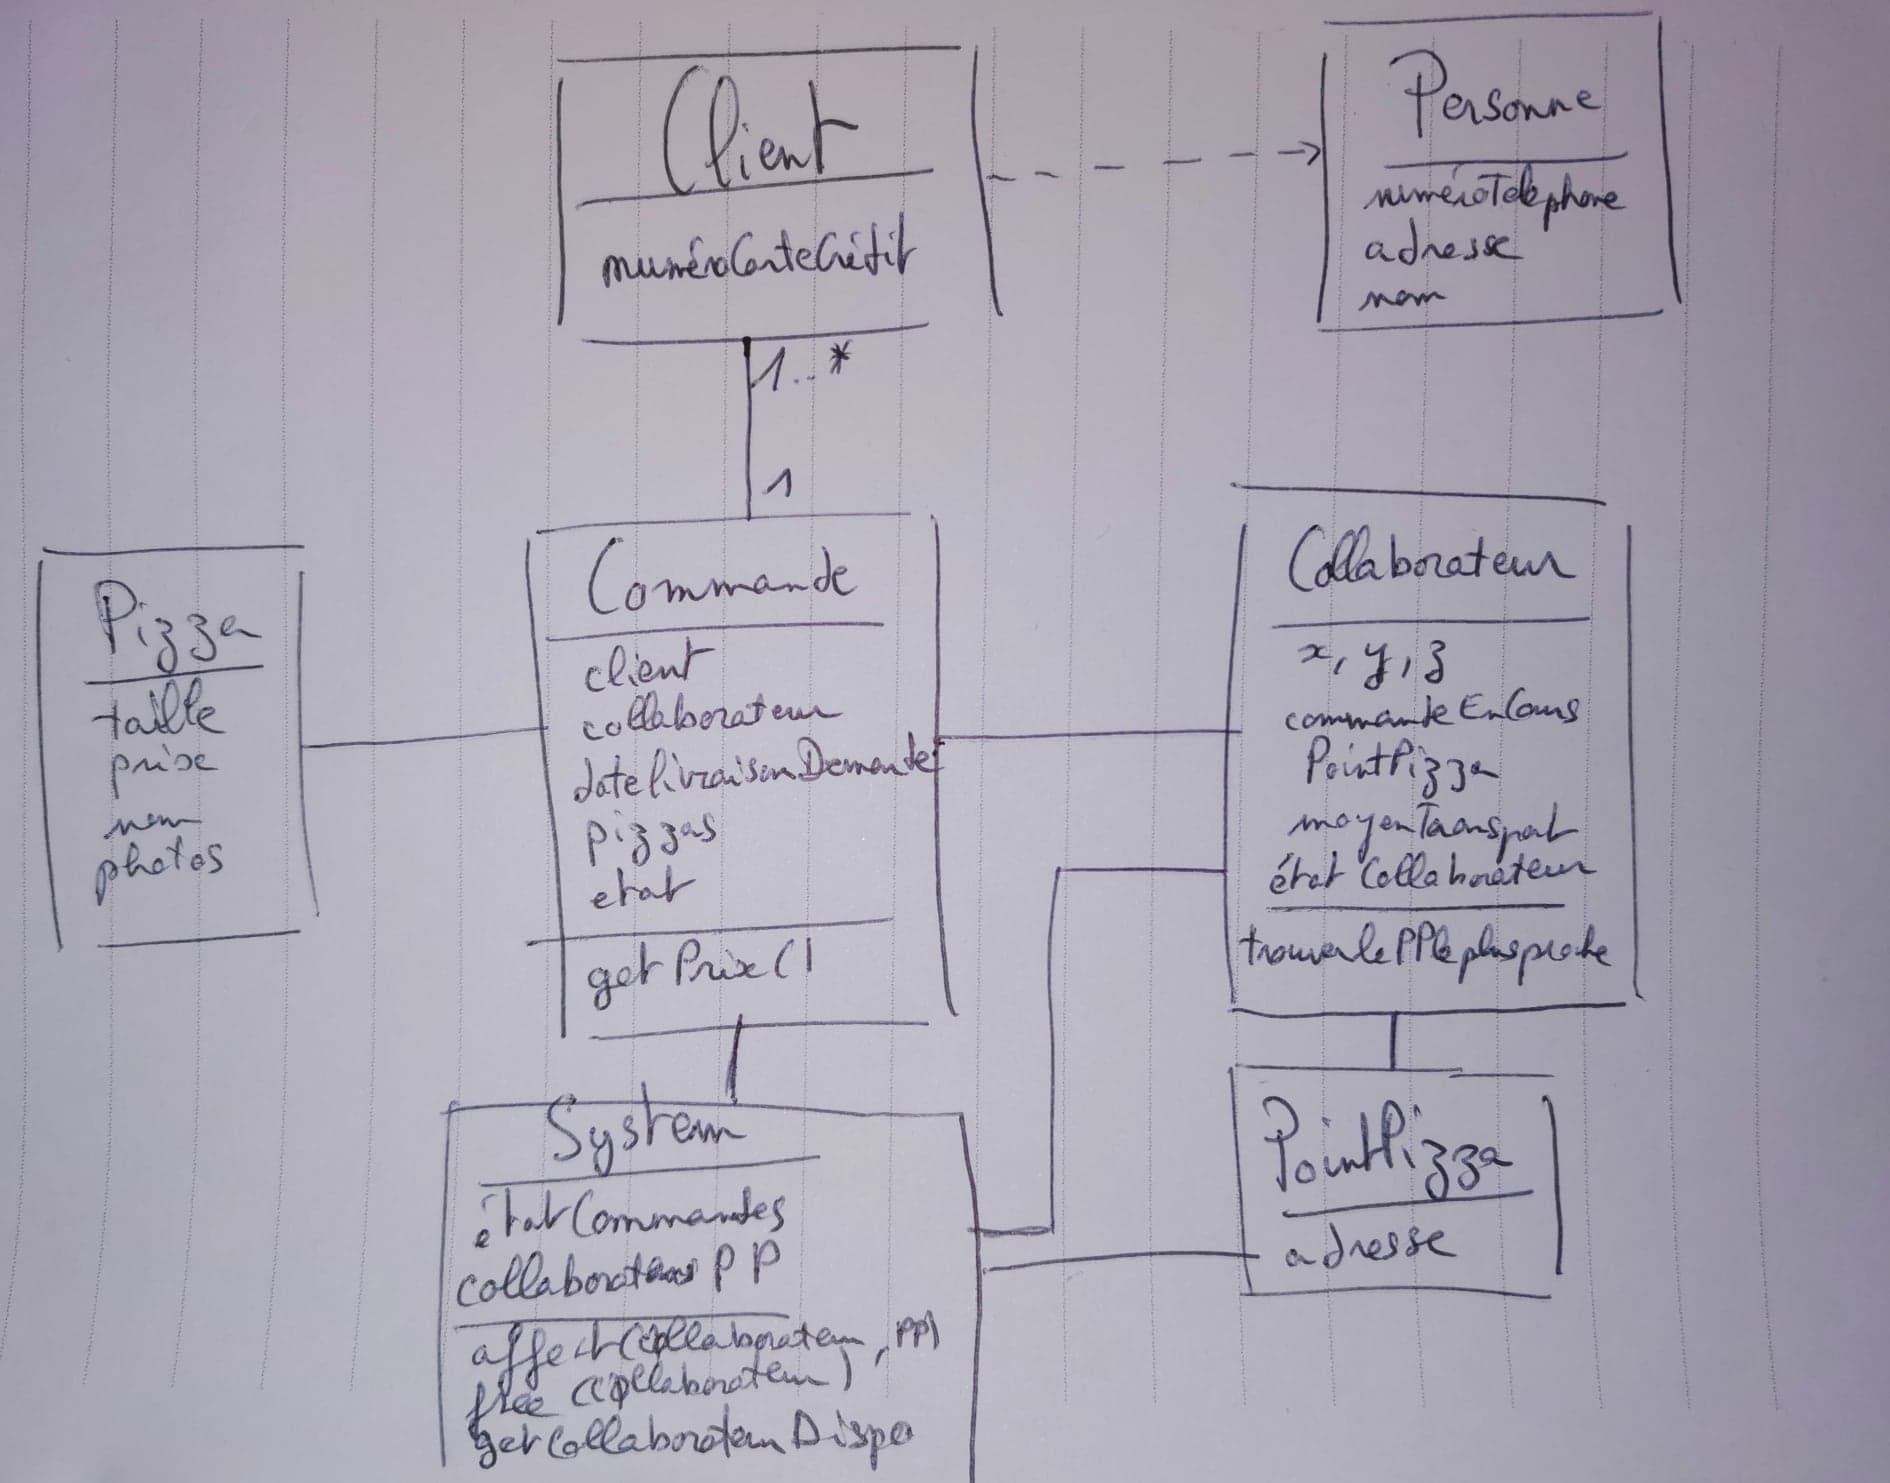 Client
numéroCarteCrédit
Personne
numéroTelephone
adresse
nom
1..*
1
Pizza
taille
prix
nom
photos
Commande
client
collaborateur
datelivraisonDemandé
pizzas
etat
getPrix()
Collaborateur
x, y, z
commandeEnCours
PointPizza
moyenTransport
état Collaborateur
trouverlePPleplusproche
System
étatCommandes
collaborateurs PP
affect(Collaborateur, PP)
free (Collaborateur)
getCollaborateurDispo
PointPizza
adresse